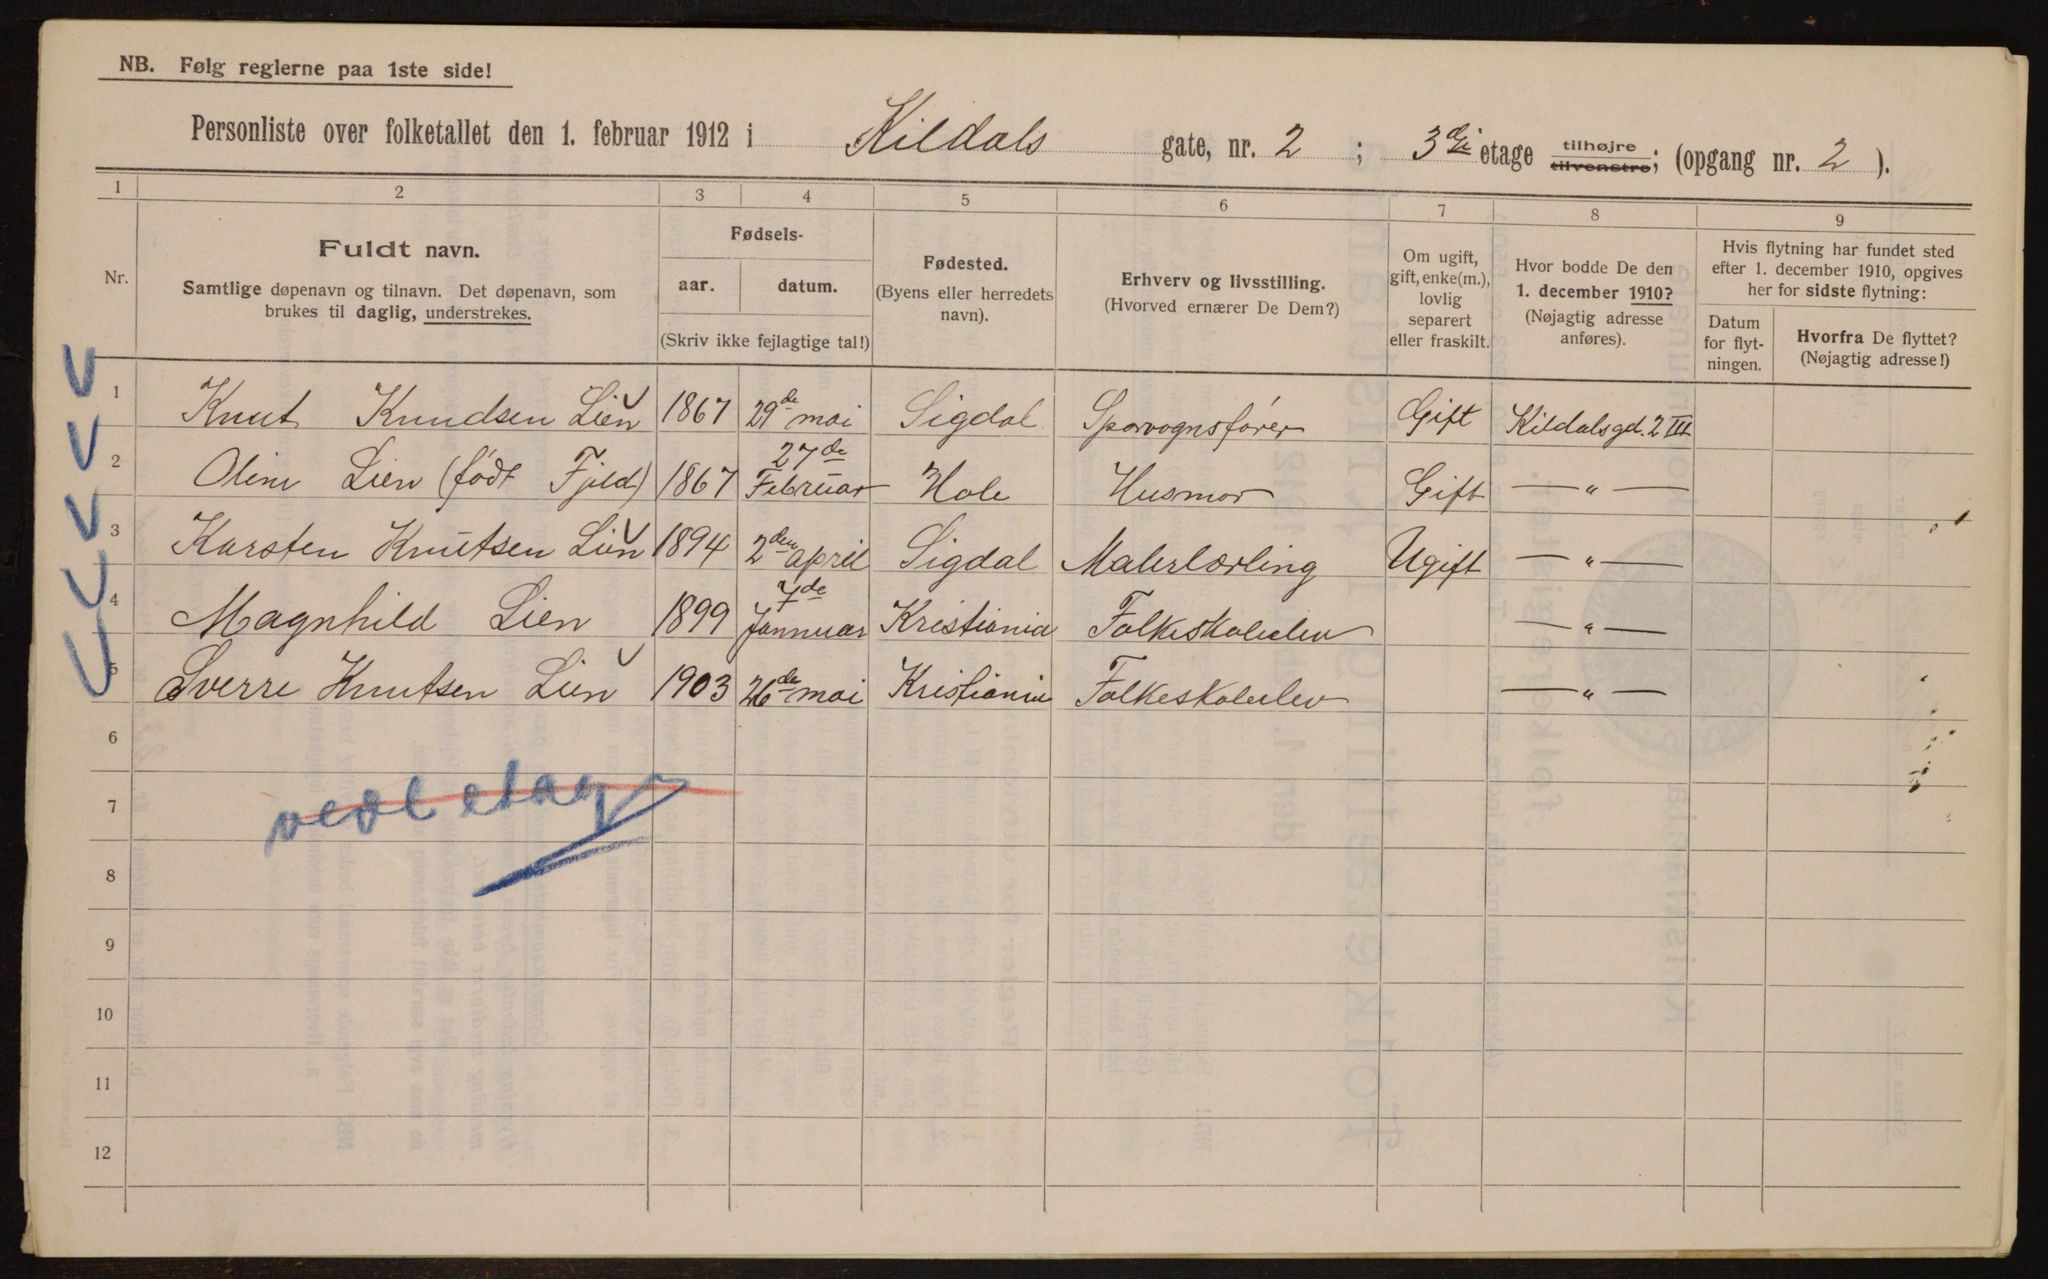 NB. Følg reglerne paa 1ste side!
Personliste over folketallet den 1. februar 1912 i Kildals gate, nr. 2 ; 3die etage tilhøjre tilvenstre; (opgang nr. 2 ).
1 2 3 4 5 6 7 8 9
Nr.
Fuldt navn.
Samtlige døpenavn og tilnavn. Det døpenavn, som
brukes til daglig, understrekes.
Fødsels-
aar. datum.
(Skriv ikke fejlagtige tal!)
Fødested.
(Byens eller herredets
navn).
Erhverv og livsstilling.
(Hvorved ernærer De Dem?)
Om ugift,
gift, enke(m.),
lovlig
separert
eller fraskilt.
Hvor bodde De den
1. december 1910?
(Nøjagtig adresse
anføres).
Hvis flytning har fundet sted
efter 1. december 1910, opgives
her for sidste flytning:
Datum
for flyt-
ningen.
Hvorfra De flyttet?
(Nøjagtig adresse!)
1 Knut Knudsen Lien 1867 29de mai Sigdal Sporvognsfører Gift Kildalsgd. 2 III
2 Oline Lien (født Fjeld) 1867 27de Februar Hole Husmor Gift — " —
3 Karsten Knutsen Lien 1894 2den april Sigdal Malerlærling Ugift — " —
4 Magnhild Lien 1899 7de Jannuar Kristiania Folkeskoleelev — " —
5 Sverre Knutsen Lien 1903 26de mai Kristiania Folkeskoleelev — " —
6
7
8
9
10
11
12